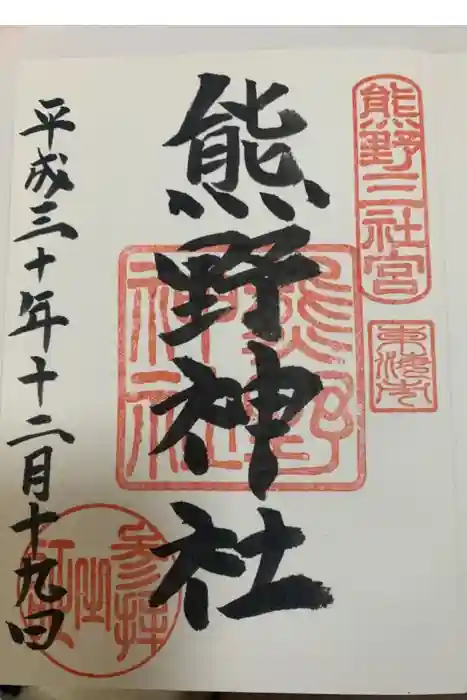 熊野三社宮
東海市
熊野神社
熊野神社
平成三十年十二月十九日
参拝